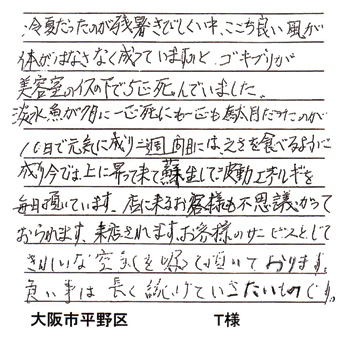 冷夏だったのが残暑きびしい中、ここち良い風が
体がはなさなく成っていますねと、ゴキブリが
美容室のイスの下で5匹死んでいました。
淡水魚が多に一匹死にも一匹も駄目だったのが
10日で元気に成り二週間目には、えさを食べるように
成り今では上に昇って来て蘇生してご波動エネルギを
毎日頂いています。店に来るお客様も不思議がって
おられます、来店されます、お客様のサービスとして
きれいな空気を吸って頂いております。
良い事は長く続けていきたいものです。
大阪市平野区 T様